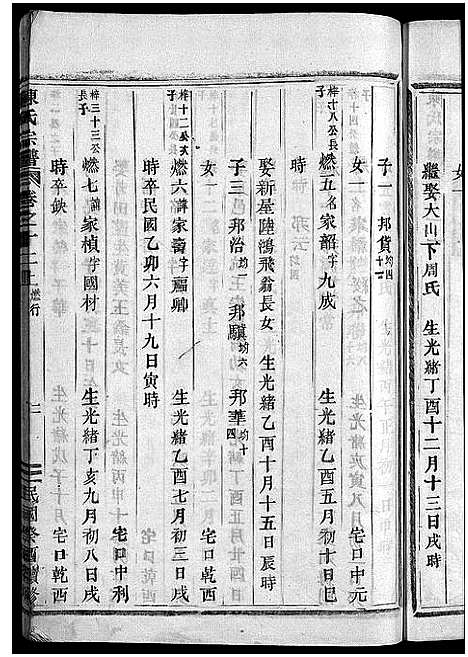 女一
繼娶大山下周氏　生光緒丁酉十二月十三日戌時
子一　邦貨均四十
女一
梓十八公長子燃五名家韶字九成　生光緒乙酉五月初十日巳　宅口中元
時
娶新屋陸鴻飛翁長女　生光緒乙酉十月十五日辰時
子三　邦治均一　邦驥均六　邦華均十四
女一
梓十二公次子燃六諱家嶺字福卿　生光緒乙酉七月初三日戌　宅口乾西
時卒民國乙卯六月十九日寅時
梓三十三公長子燃七諱家楨字國材　生光緒丁亥九月初八日戌　宅口中利
時卒缺
陳氏宗譜　卷之十二上燃行